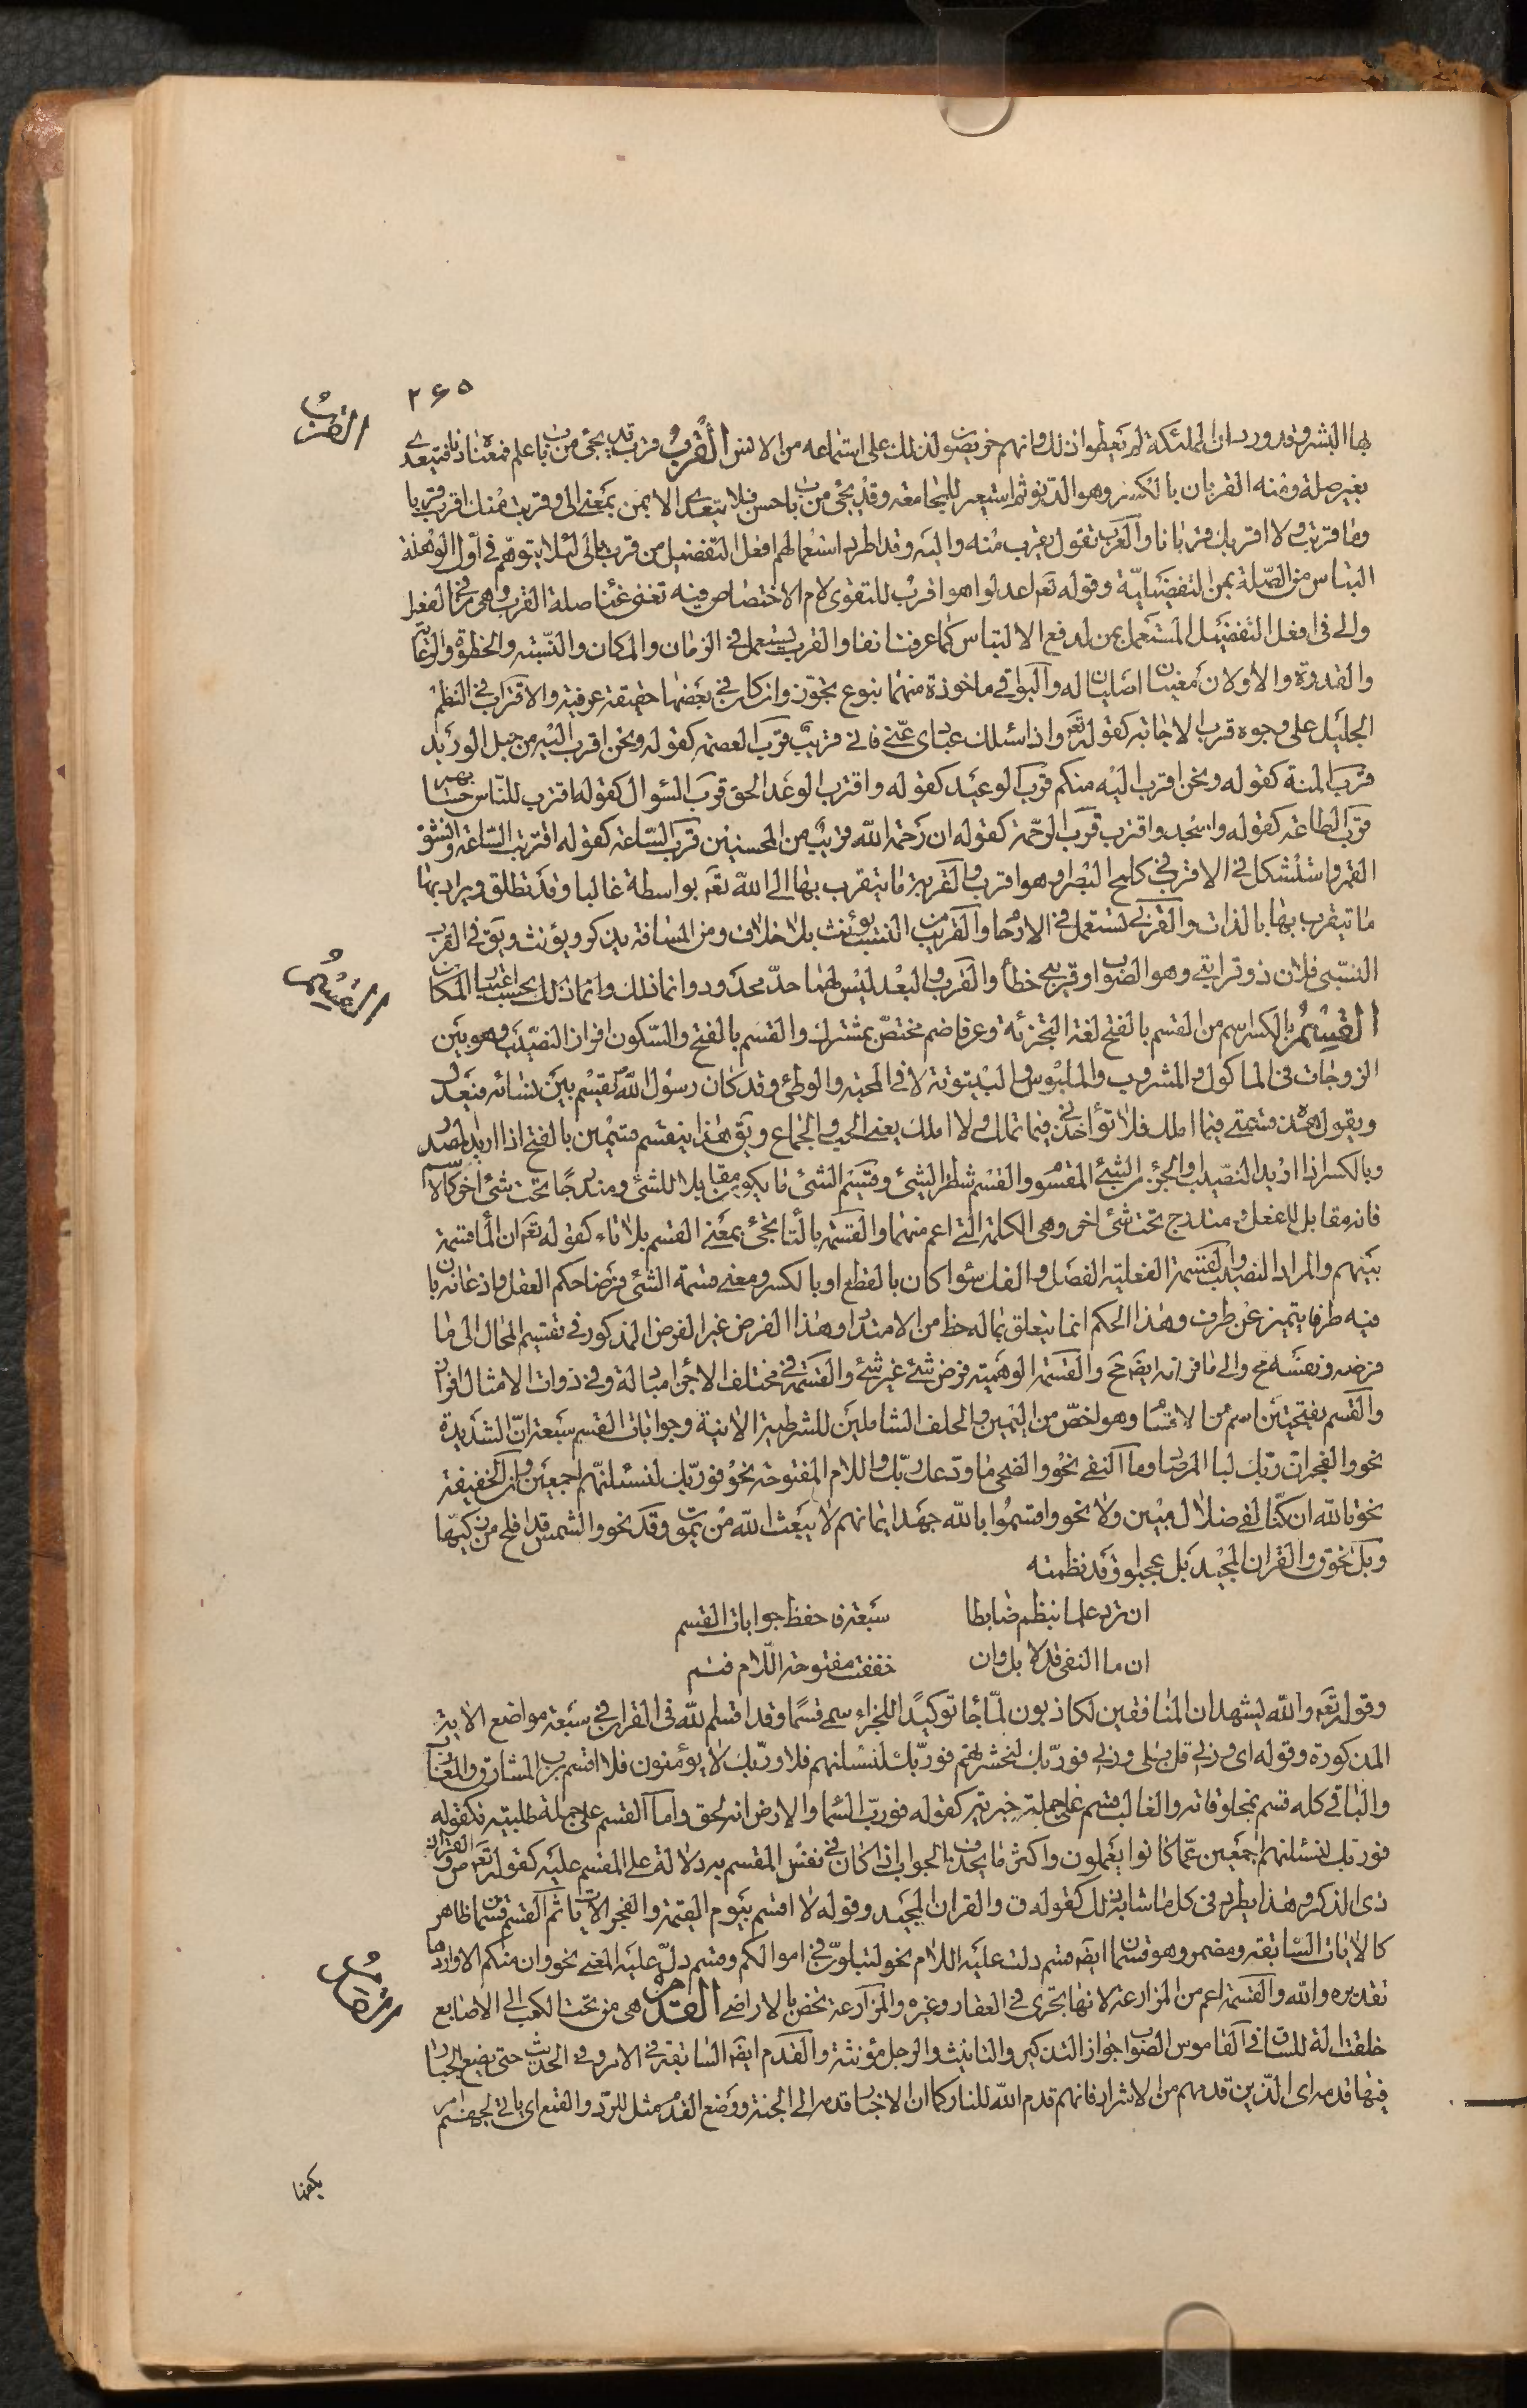 ٢٦٥
القرب
بها البشر وقد ورد ان الملئكة لم يعطوا ذلك وانهم حريصون لذلك على استماعه من الانس القرب قرب قد يجئ من باب علم فمعناه دنا فيتعدى
بغير صلة ومنه القربان بالكسر وهو الدنو ثم استعير للمجامعة وقد يجئ من باب حسن فلا يتعدى الا بمن بمعنى الى وقربت منك اقرب قربا
وما قربتك ولا اقربك قربانا والعرب تقول يقرب منه واليه وقد اطرد استعمالهم افعل التفضيل من قرب بالى لئلا يتوهم في اول الوهلة
التباس من الصلة بمن التفضيلية وقوله تعم اعدلوا هو اقرب للتقوى لام الاختصاص فيه تغنى غنا صلة القرب وهى من في الفعل
والى في افعل التفضيل المستعمل بمن لدفع الالتباس كما عرفت انفا والقرب يستعمل في الزمان والمكان والنسبة والخطوة والرعاية
والقدرة والاولان معنيان اصليان له والبواقي ماخوذة منهما بنوع تجوز وان كان في بعضها حقيقة عرفية والاقتراب في النظم
الجليل على وجوه قرب الاجابة كقوله تعم واذا سئلك عبادى عنى فانى قريب قرب العصمة كقوله ونحن اقرب اليه من حبل الوريد
قرب المنة كقوله ونحن اقرب اليه منكم قرب الوعيد كقوله واقترب الوعد الحق قرب السؤال كقوله اقترب للناس حسابهم
قرب الطاعة كقوله واسجد واقترب قرب الرحمة كقوله ان رحمة الله قريب من المحسنين قرب الساعة كقوله اقتربت الساعة وانشق
القمر واستشكل في الاقرب في كلمح البصر او هو اقرب والقربة ما يتقرب بها الى الله تعم بواسطة غالبا وقد تطلق ويراد بها
ما يتقرب بها بالذات والقربى تستعمل في الارحام والقريب من النسب يؤنث بلا خلاف ومن المسافة يذكر ويؤنث ويق في القرب
النسبى فلان ذو قرابتى وهو الصواب او قريبى خطأ والقرب والبعد ليس لهما حد محدود وانما ذلك وانما ذلك بحسب اعتبار المكان
القسم
القسم بالكسر اسم من القسم بالفتح لغة التجزئة وعرفا ضم مختص بمشترك والقسم بالفتح والسكون افراز النصيب وهو بين
الزوجات في الماكول والمشروب والملبوس والبيتوتة لا في المحبة والوطئ وقد كان رسول الله يقسم بين نسائه فيعدل
ويقول هذه قسمتى فيما املك فلا تؤاخذنى فيما تملك ولا املك يعنى الحب والجماع ويق هذا ينقسم قسمين بالفتح اذا اريد المصدر
وبالكسر اذا اريد النصيب او الجزء من الشئ المقسوم والقسم شطر الشئ وقسيم الشئ ما يكون مقابلا للشئ ومندرجا تحت شئ اخر كالاسم
فانه مقابل للفعل ومندرج تحت شئ اخر وهى الكلمة التى اعم منهما والقسمة بالتا تجئ بمعنى القسم بلا تاء كقوله تعم ان الماء قسمة
بينهم والمراد النصيب والقسمة الفعلية الفصل والفك سواء كان بالقطع او بالكسر ومعنى قسمة الشئ فرضا حكم العقل واذعانه بان
فيه طرفا يتميز عن طرف وهذا الحكم انما يتعلق بماله حظ من الامتداد وهذا الفرض غير الفرض المذكور في تقسيم المحال الى ما
فرضه ونفسه مح والى ما فرضه ايضه مح والقسمة الوهمية فرض شئ غير شئ والقسمة في مختلف الاجزاء مبادلة وفى ذوات الامثال افراز
والقسم بفتحتين اسم من الاقسام وهو اخص من اليمين والحلف الشاملين للشرطية الاتية وجوابات القسم سبعة ان الشديدة
نحو والفجر ان ربك لبالمرصاد وما النفى نحو والضحى ما ودعك ربك واللام المفتوحة نحو فوربك لنسئلنهم اجمعين وان الخفيفة
نحو تالله ان كنا لفى ضلال مبين ولا نحو واقسموا بالله جهد ايمانهم لا يبعث الله من يموت وقد نحو والشمس قد افلح من زكيها
وبل نحو ق والقران المجيد بل عجبوا وقد نظمته
ان ترد علما بنظم ضابطا سبعة فاحفظ جوابات القسم
ان ما النفى قد لا بل وان خففت مفتوحة اللام فتم
وقوله تعم والله يشهد ان المنافقين لكاذبون لما جا توكيدا للجزاء سمى قسما وقد اقسم الله في القران في سبعة مواضع الاية
المذكورة وقوله اى وربى قل بلى وربى فوربك لنحشرنهم فوربك لنسئلنهم فلا وربك لا يؤمنون فلا اقسم برب المشارق والمغارب
والباقى كله قسم بمخلوقاته والغالب قسم على جملة خبرية كقوله فورب السماء والارض انه لحق واما القسم على جملة طلبية فكقوله
فوربك لنسئلنهم اجمعين عما كانوا يعملون واكثر ما يحذف الجواب اذا كان في نفس المقسم به دلالة على المقسم عليه كقوله تعم ص والقران
ذى الذكر وهذا يطرد في كل ما شابه ذلك كقوله ق والقران المجيد وقوله لا اقسم بيوم القيمة والفجر الايات ثم القسم قسمان ظاهر
كالايات السابقة ومضمر وهو قسمان ايضه قسم دلت عليه اللام نحو لتبلون في اموالكم وقسم دل عليه المعنى نحو وان منكم الا واردها
القدم
تقديره والله والقسمة اعم من المزارعة لانها تجرى في العقار وغيره والمزارعة تختص بالاراضى القدم هى من تحت الكعب الى الاصابع
خلقت الة للساق في القاموس الصواب جواز التذكير والتانيث والرجل مؤنثة والقدم ايضه السابقة في الامر وفى الحديث حتى يضع الجبار
فيها قدمه اى الذين قدمهم من الاشرار فانهم قدم الله للنار كما ان الاخيار قدمه الى الجنة ووضع القدم مثل للرد والقمع اى ياتى لجهنم